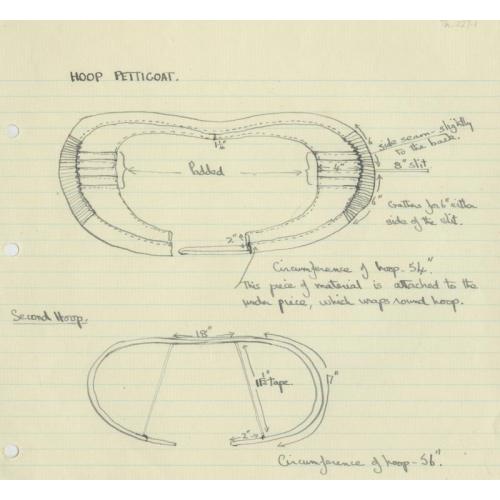 HOOP PETTICOAT.
6"
side seam - slightly
to the back.
1½"
Padded
4"
8" slit
6"
Gathers for 6" either
side of the slit.
2"
Circumference of hoop - 54"
This piece of material is attached to the
under piece, which wraps round hoop.
Second Hoop.
18"
11½" tape.
17"
2"
Circumference of hoop - 56".